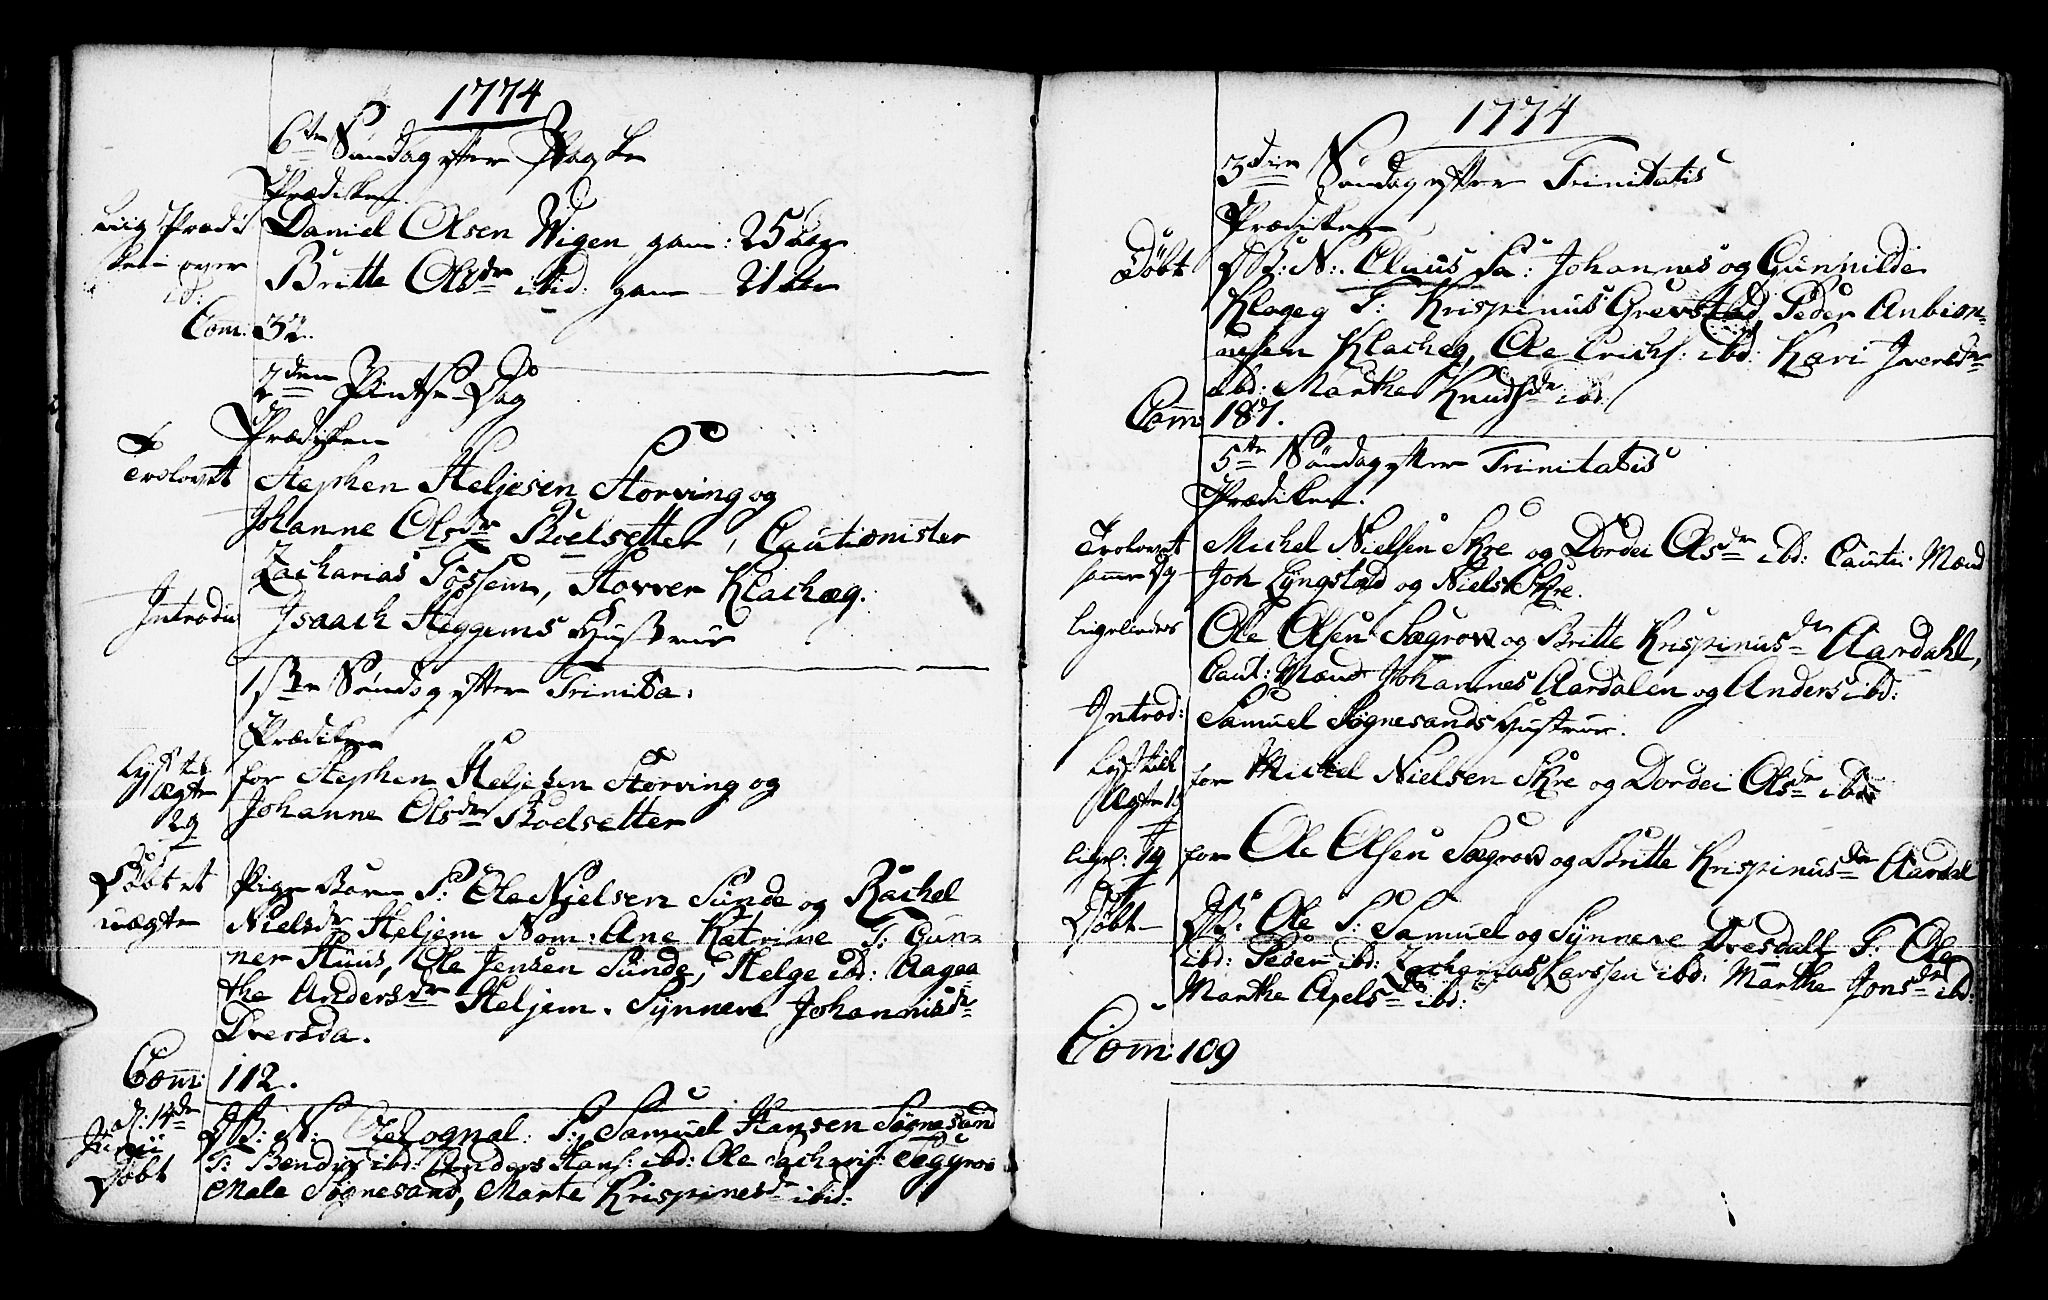 1774
6te Søndag efter Paaske
Prædiken
Liig Prædi Daniel Olsen Wigen, gam: 25 Aar
ken over Britte Olsdr ibid: gam 21 Aar
Com: 32.
2den Pintse Dag
Prædiken
Trolovet Stephen Heljesen Storving og
Johanne Olsdr Boelsetter, Cautionister
Zacharias Fossem, Stovver Klachæg.
Introdu Isaach Heggems Hustrue
1ste Søndag efter Trinita:
Prædiken
Lyst til for Stephen Heljesen Storving og
Ægte Johanne Olsdr Boelsetter
29
Døbt et Pige Barn F: Ole Nielsen Sunde og Rachel
uægte Nielsdr Heljem Nom: Ane Katrine T: Gun-
ner Huus, Ole Jensen Sunde, Helge ibd: Aagaa
the Andersdr Heljem. Synneve Johannisdr
Dversda.
Com: 112.
d: 14de DB: N: F: Samuel Hansen Søgnesand
Junii T: Bendix ibd: Anders Hans: ibd: Ole Zacharis: Seggroe
Døbt Male Søgnesand, Marte Krispinesdr ibid:
1774
3die Søndag efter Trinitatis
Prædiken
Døbt DB: N: Claus Fa: Johannes og Gunnilde
Klageg T: Krispinus Grevstad, Peder Anbiør-
nesen Klacheg, Ole Erichs: ibd: Kari Iversdr
ibd: Marthe Knudsdr ibd:
Com: 187.
5te Søndag efter Trinitatis
Prædiken.
Trolovet Michel Nielsen Skre og Dordei Olsdr ibd: Cauti: Mænd
samme Dg Joh Lyngstad og Niels Skre.
ligeledes Ole Olsen Sægrow og Britte Krispinusdr Aardahl,
Caut: Mænd Johannes Aardalen og Anders ibd:
Introd: Samuel Søgnesands Hustrue.
Lyst till for Michel Nielsen Skre og Dordei Olsdr ibd:
Ægte 19
ligel: 19 for Ole Olsen Sægrow og Britte Krispinusdr Aardal
Døbt DB: Ole F: Samuel og Synneve Dvesdall T: Ole
ibd: Peder ibd: Zacharias Larssen ibd: Marthe Jonsdr ibd:
Marthe Apelsdr ibd:
Com: 109